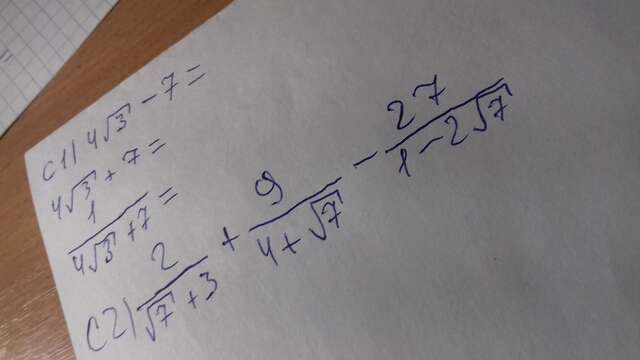 C1) 4√3 - 7 =
4√3 + 7 =
1/(4√3 + 7) =
C2) 2/(√7 + 3) + 9/(4 + √7) - 27/(1 - 2√7)